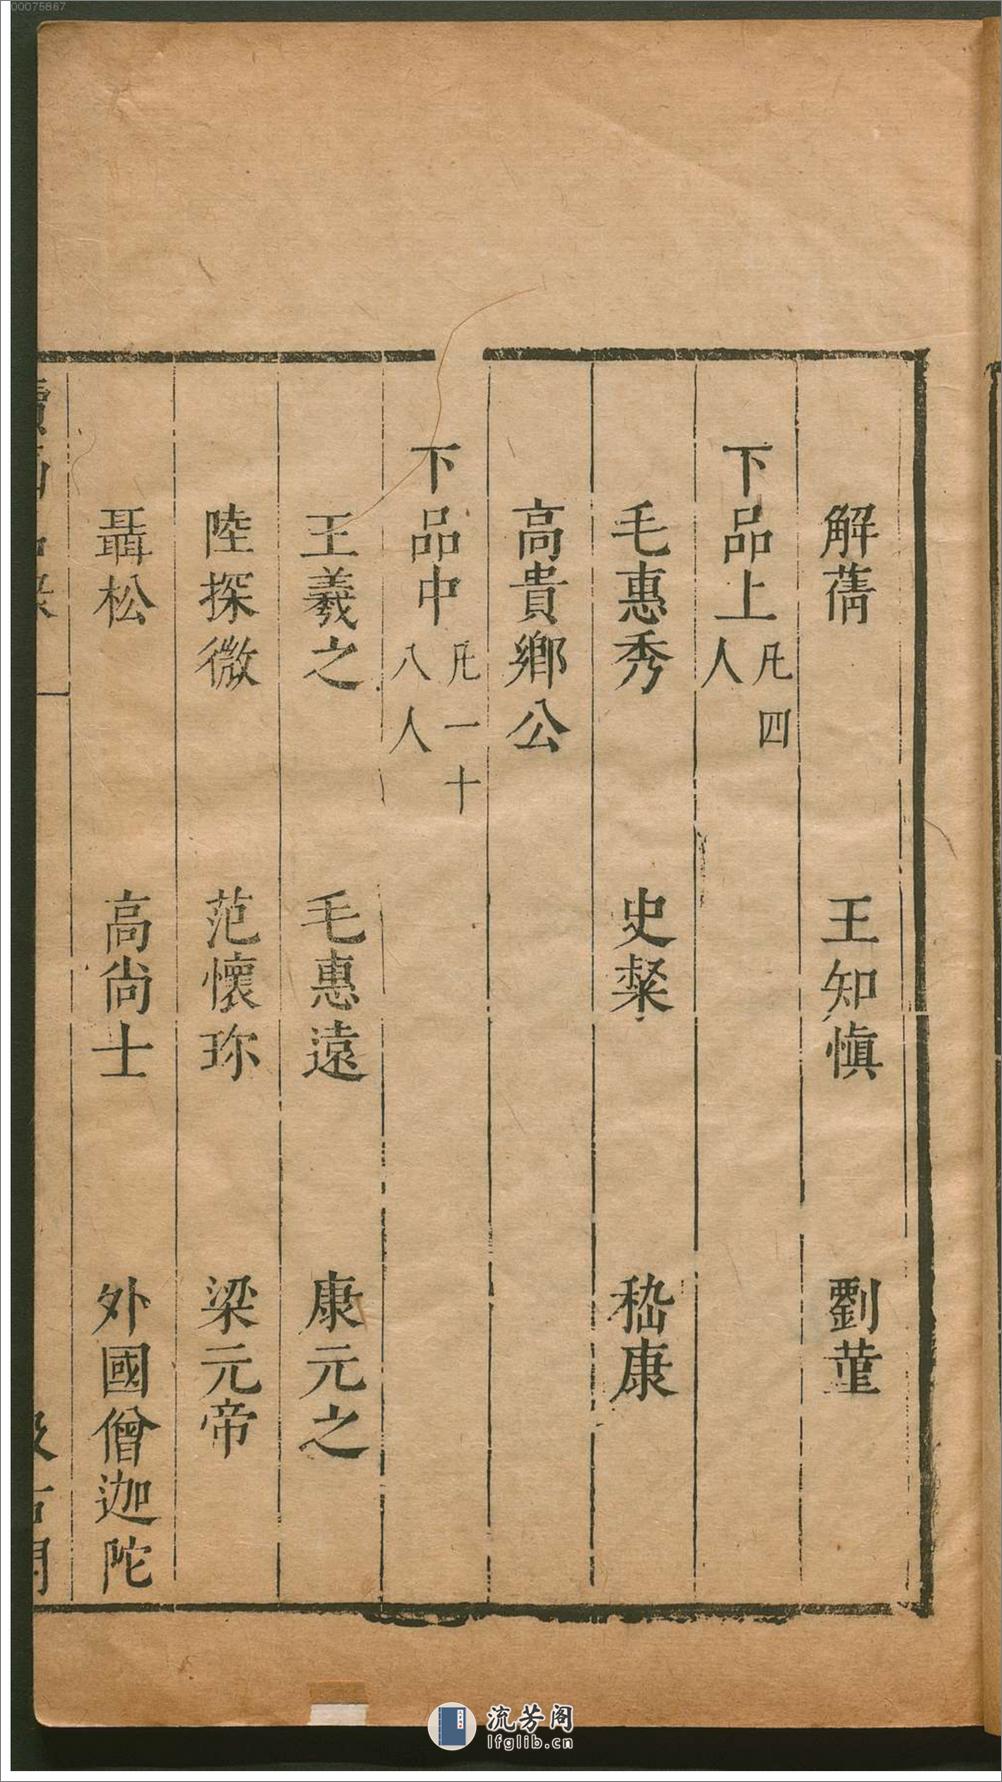 00075867
解蒨　王知慎　劉菫
下品上凡四人
毛惠秀　史粲　嵇康
高貴鄉公
下品中凡一十八人
王羲之　毛惠遠　康元之
陸探微　范懷珎　梁元帝
聶松　高尚士　外國僧迦陀
一
流芳阁
lfglib.cn